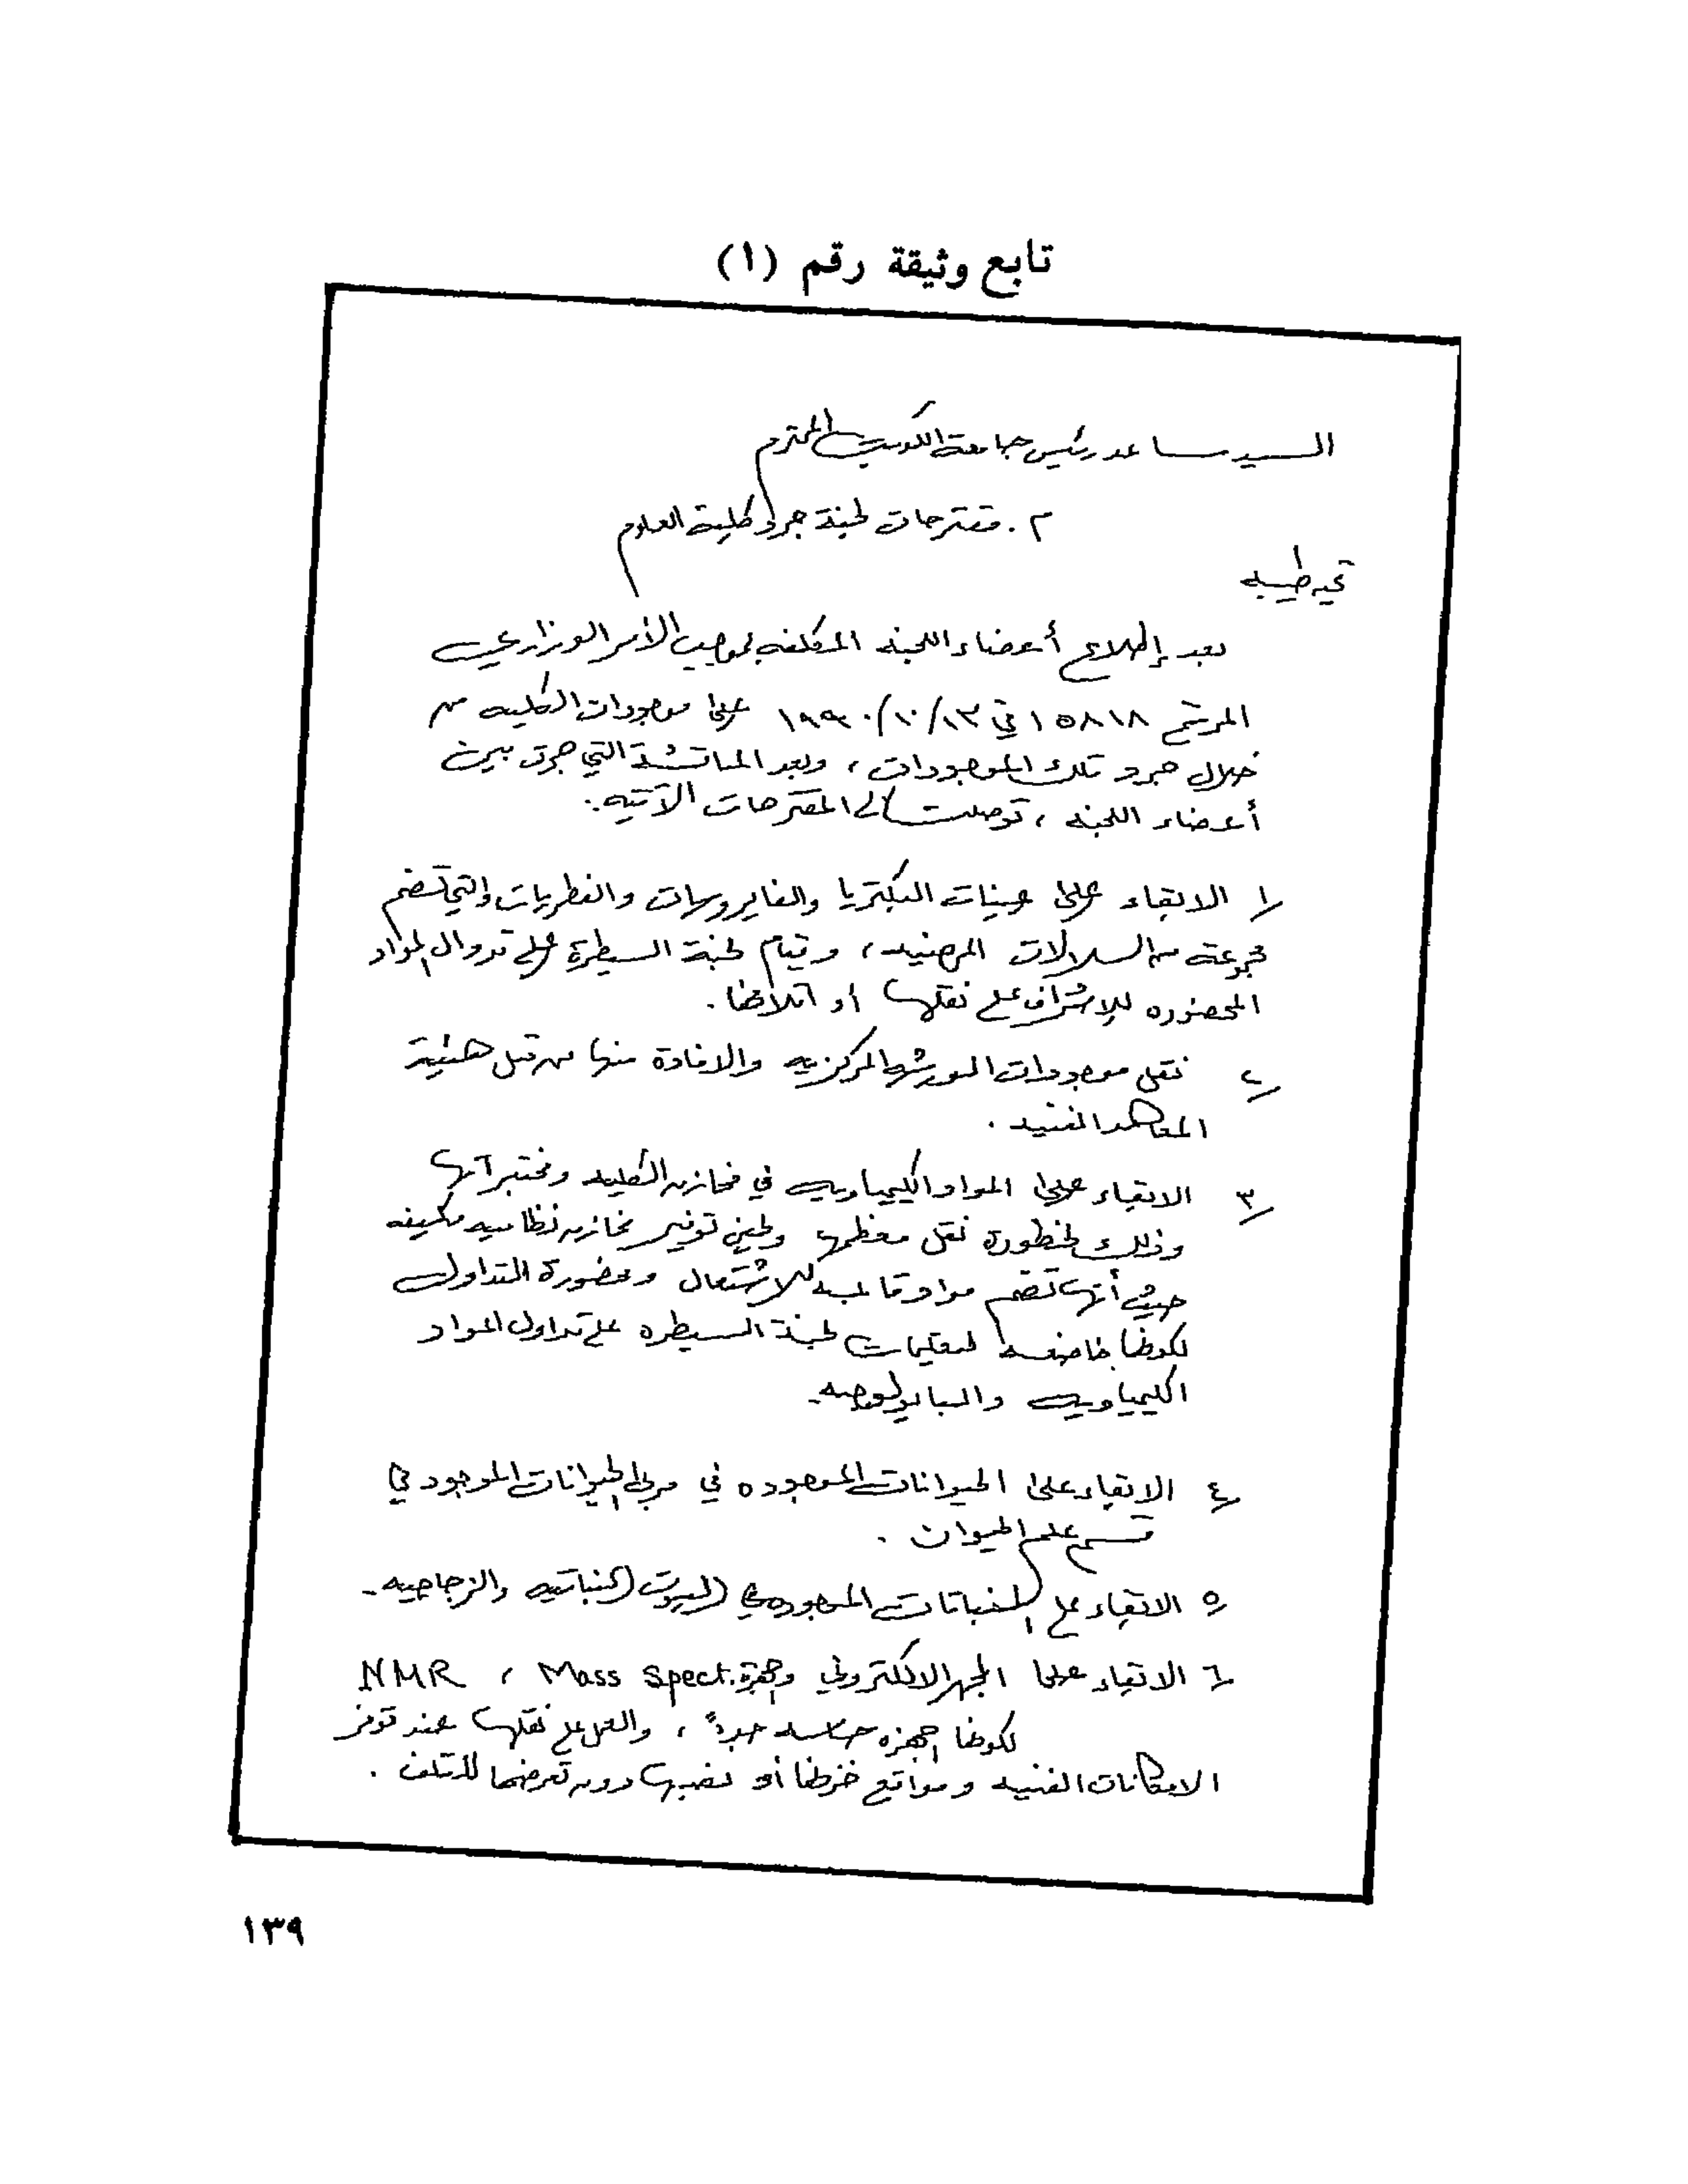 تابع وثيقة رقم (١)
السيد مساعد رئيس جامعة الكويت المحترم
م. مقترحات لجنة جرد كلية العلوم
تحيه طيبه
بعد إطلاع أعضاء اللجنه المكلفه بموجب الأمر الوزاري
المرقم ١٥٨١٨ في ١٣/١٠/١٩٩٠ على موجودات الكليه من
خلال جرد تلك الموجودات ، وبعد المناقشة التي جرت بين
أعضاء اللجنه ، توصلت الى المقترحات الآتيه :
١/ الابقاء على عينات البكتريا والفايروسات والفطريات والتي تضم
مجموعة من السلالات المرضيه ، وقيام لجنة السيطرة على تدوال المواد
المحضوره للإشراف على نقلها أو اتلافها .
٢/ نقل موجودات الورشه المركزيه والافادة منها من قبل هيئة
المعاهد الفنيه .
٣/ الابقاء على المواد الكيمياويه في مخازن الكليه ومختبراتها
وذلك لخطورة نقل معظمها ولحين توفير مخازن نظاميه مكيفه
حيث أنها تضم مواد قابله للاشتعال ومحضورة التداول
لكونها خاضعه لتعليمات لجنة السيطره على تداول المواد
الكيمياويه والبايولوجيه.
٤/ الابقاء على الحيوانات الموجوده في مربى الحيوانات الموجود في
قسم علم الحيوان .
٥/ الابقاء على النباتات الموجوده في البيوت النباتيه والزجاجيه .
٦/ الابقاء على المجهر الالكتروني واجهزة Mass Spect. ، NMR
لكونها اجهزه حساسه جداً ، والعمل على نقلها عند توفر
الامكانات الفنيه ومواقع خزنها أو نصبها دون تعرضها للتلف .
١٣٩